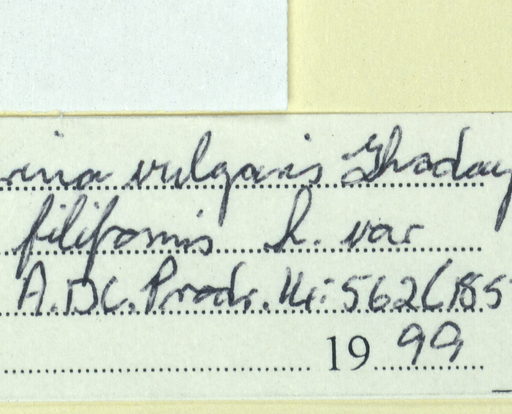 rina vulgaris
filiformis L. var
A.DC. Prodr. 14: 562 (185
1999